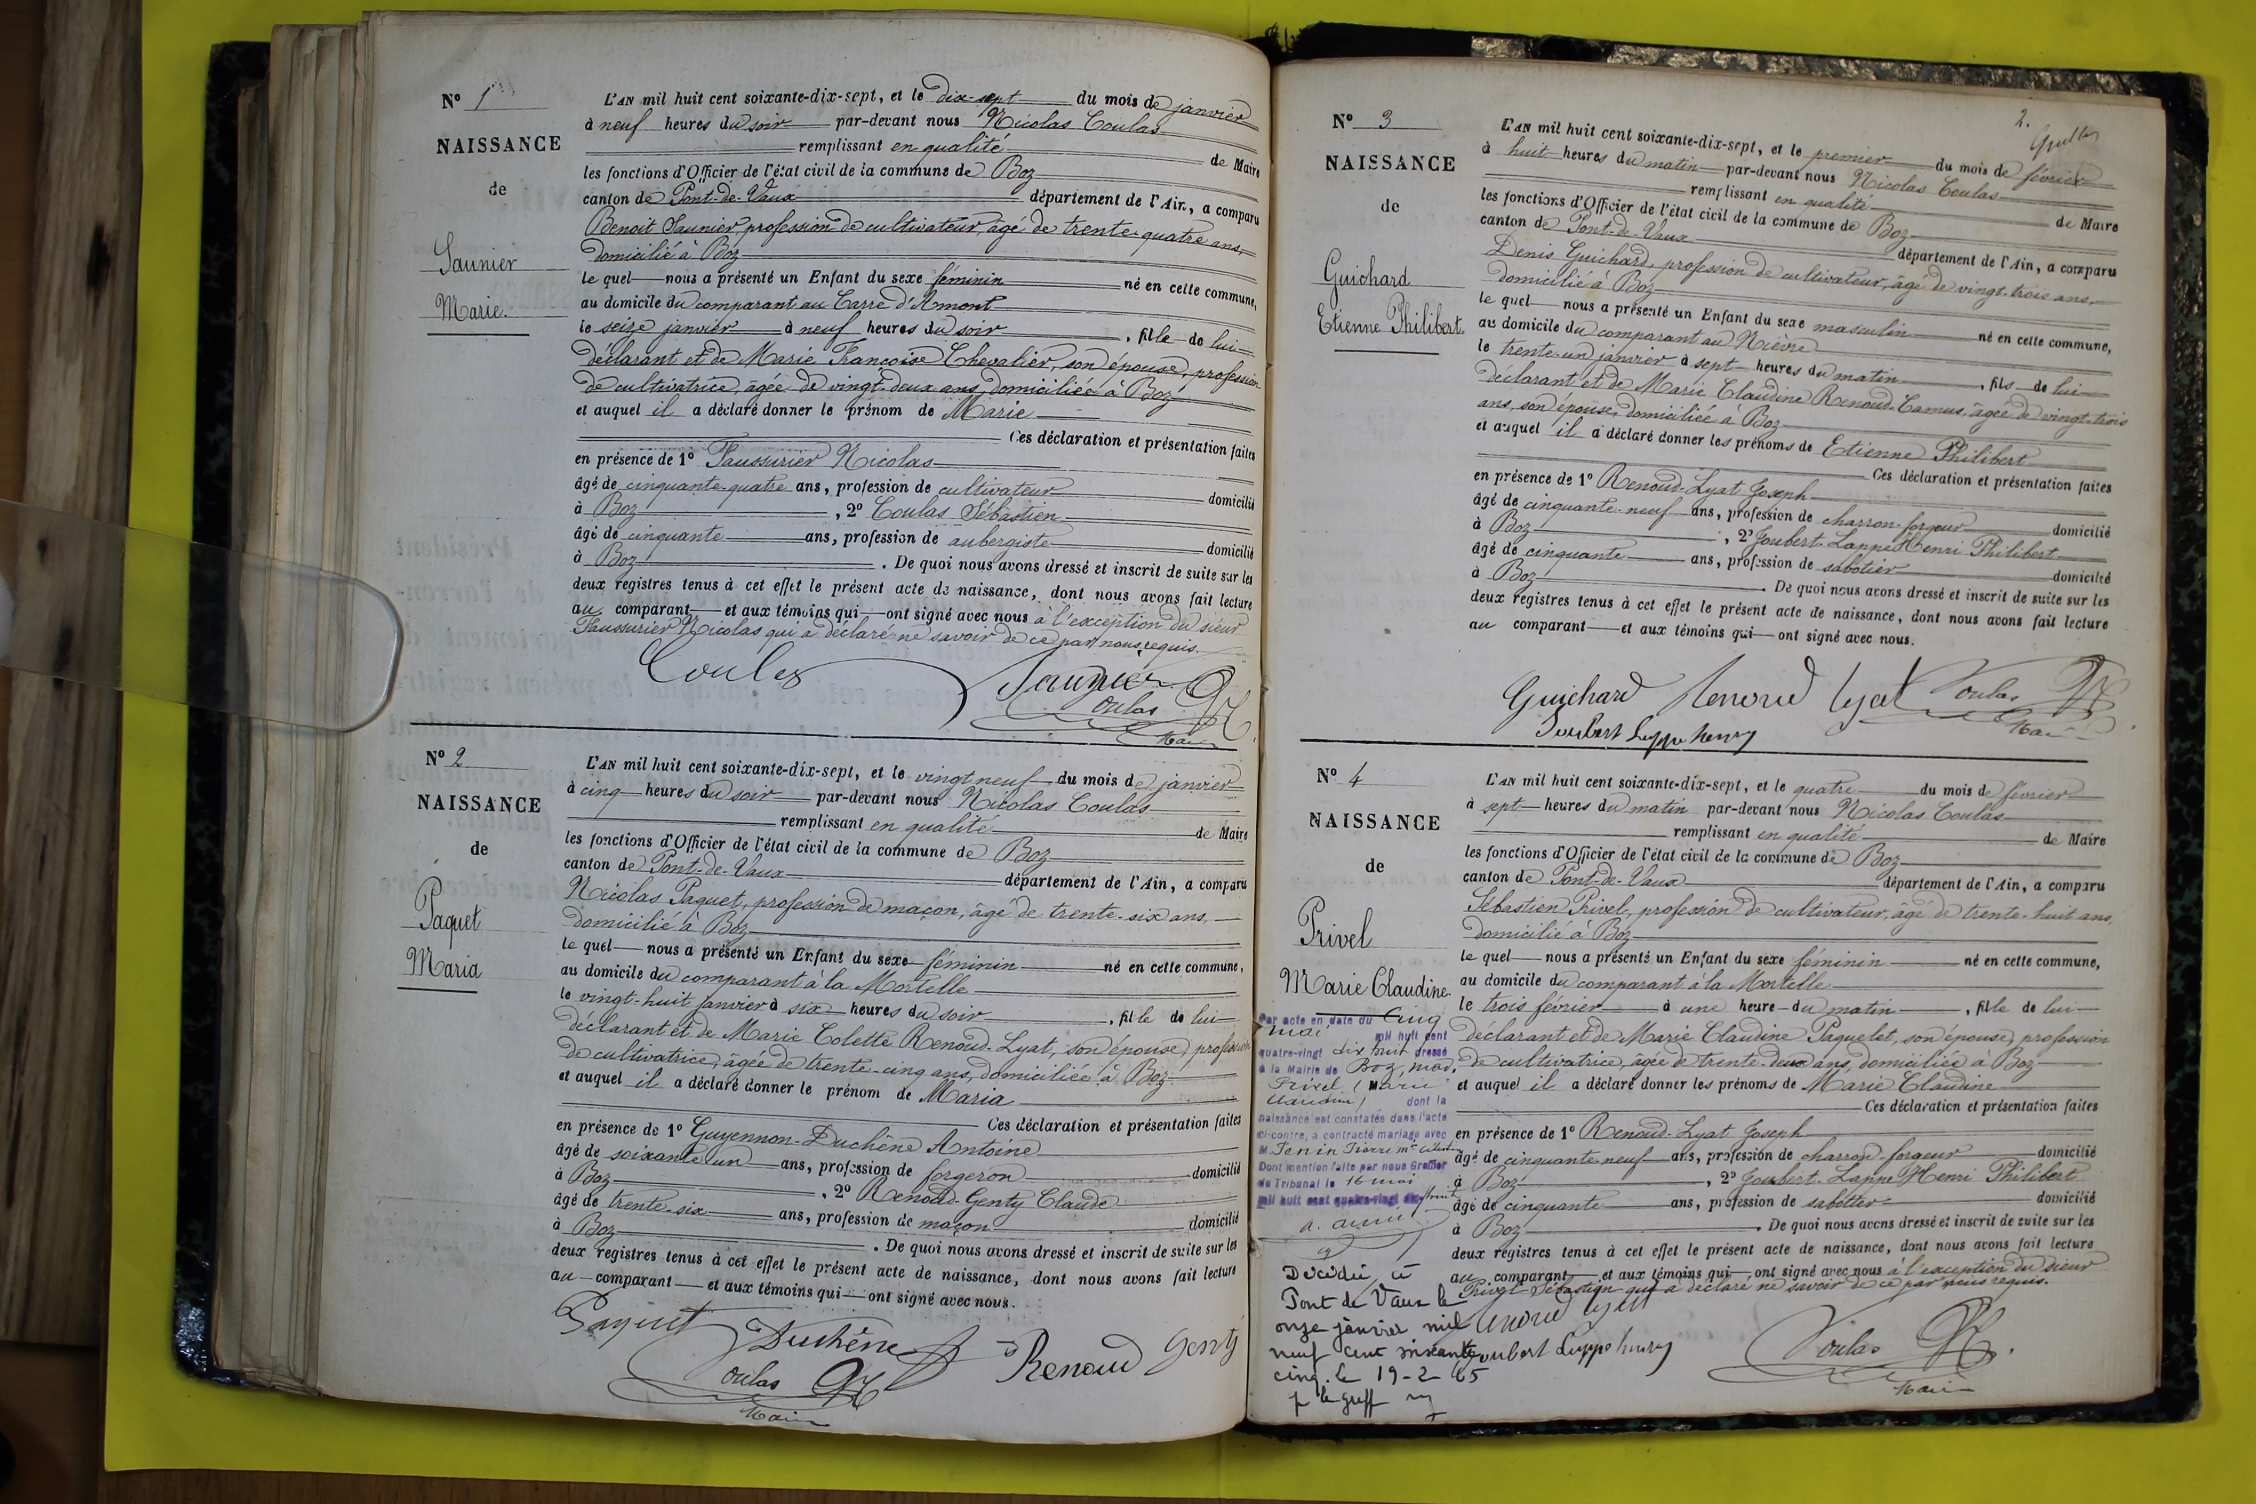 N° 1
NAISSANCE
de
Saunier
Marie.
L'AN mil huit cent soixante-dix-sept, et le dix-sept du mois de janvier
à neuf heures du soir par-devant nous Nicolas Coulas
remplissant en qualité de Maire
les fonctions d'Officier de l'état civil de la commune de Boz
canton de Pont-de-Vaux département de l'Ain, a comparu
Benoit Saunier, profession de cultivateur, âgé de trente-quatre ans,
domicilié à Boz
le quel nous a présenté un Enfant du sexe féminin né en cette commune,
au domicile du comparant au Carre d'Amont
le seize janvier à neuf heures du soir, fille de lui
déclarant et de Marie Françoise Chevalier, son épouse, profession
de cultivatrice, âgée de vingt-deux ans, domiciliée à Boz
et auquel il a déclaré donner le prénom de Marie
Ces déclaration et présentation faites
en présence de 1° Faussurier Nicolas
âgé de cinquante-quatre ans, profession de cultivateur domicilié
à Boz, 2° Coulas Sébastien
âgé de cinquante ans, profession de aubergiste domicilié
à Boz. De quoi nous avons dressé et inscrit de suite sur les
deux registres tenus à cet effet le présent acte de naissance, dont nous avons fait lecture
au comparant et aux témoins qui ont signé avec nous à l'exception du sieur
Faussurier Nicolas qui a déclaré ne savoir de ce par nous requis.
Coulas Saunier
Coulas N
Maire
N° 2
NAISSANCE
de
Paquet
Maria
L'AN mil huit cent soixante-dix-sept, et le vingt neuf du mois de janvier
à cinq heures du soir par-devant nous Nicolas Coulas
remplissant en qualité de Maire
les fonctions d'Officier de l'état civil de la commune de Boz
canton de Pont-de-Vaux département de l'Ain, a comparu
Nicolas Paquet, profession de maçon, âgé de trente-six ans,
domicilié à Boz
le quel nous a présenté un Enfant du sexe féminin né en cette commune,
au domicile du comparant à la Mortelle
le vingt-huit janvier à six heures du soir, fille de lui
déclarant et de Marie Colette Renoud-Lyat, son épouse, profession
de cultivatrice, âgée de trente-cinq ans, domiciliée à Boz
et auquel il a déclaré donner le prénom de Maria
Ces déclaration et présentation faites
en présence de 1° Guyennon-Duchêne Antoine
âgé de soixante un ans, profession de forgeron domicilié
à Boz, 2° Renoud-Genty Claude
âgé de trente-six ans, profession de maçon domicilié
à Boz. De quoi nous avons dressé et inscrit de suite sur les
deux registres tenus à cet effet le présent acte de naissance, dont nous avons fait lecture
au comparant et aux témoins qui ont signé avec nous.
Paquet Duchêne Renoud Genty
Coulas N
Maire
2.
N° 3
NAISSANCE
de
Guichard
Etienne Philibert.
L'AN mil huit cent soixante-dix-sept, et le premier du mois de février
à huit heures du matin par-devant nous Nicolas Coulas
remplissant en qualité de Maire
les fonctions d'Officier de l'état civil de la commune de Boz
canton de Pont-de-Vaux département de l'Ain, a comparu
Denis Guichard, profession de cultivateur, âgé de vingt-trois ans,
domicilié à Boz
le quel nous a présenté un Enfant du sexe masculin né en cette commune,
au domicile du comparant au Nièvre
le trente-un janvier à sept heures du matin, fils de lui
déclarant et de Marie Claudine Renoud-Camus, âgée de vingt-trois
ans, son épouse, domiciliée à Boz
et auquel il a déclaré donner les prénoms de Etienne Philibert
Ces déclaration et présentation faites
en présence de 1° Renoud-Lyat Joseph
âgé de cinquante-neuf ans, profession de charron-forgeur domicilié
à Boz, 2° Joubert-Lappe Henri Philibert
âgé de cinquante ans, profession de sabotier domicilié
à Boz. De quoi nous avons dressé et inscrit de suite sur les
deux registres tenus à cet effet le présent acte de naissance, dont nous avons fait lecture
au comparant et aux témoins qui ont signé avec nous.
Guichard Renoud Lyat Coulas N
Joubert Lappe henry Maire
N° 4
NAISSANCE
de
Privel
Marie Claudine.
Par acte en date du cinq
mai mil huit cent
quatre-vingt dix huit dressé
à la Mairie de Boz, mad.
Privel (Marie
Claudine) dont la
naissance est constatée dans l'acte
ci-contre, a contracté mariage avec
M. Fenin Pierre
Dont mention faite par nous Greffier
du Tribunal le 16 mai
mil huit cent quatre-vingt dix huit
Décédée à
Pont de Vaux le
onze janvier mil
neuf cent soixante
cinq. le 19-2 65
p le greff
L'AN mil huit cent soixante-dix-sept, et le quatre du mois de février
à sept heures du matin par-devant nous Nicolas Coulas
remplissant en qualité de Maire
les fonctions d'Officier de l'état civil de la commune de Boz
canton de Pont-de-Vaux département de l'Ain, a comparu
Sébastien Privel, profession de cultivateur, âgé de trente-huit ans,
domicilié à Boz
le quel nous a présenté un Enfant du sexe féminin né en cette commune,
au domicile du comparant à la Mortelle
le trois février à une heure du matin, fille de lui
déclarant et de Marie Claudine Paquelet, son épouse, profession
de cultivatrice, âgée de trente-deux ans, domiciliée à Boz
et auquel il a déclaré donner les prénoms de Marie Claudine
Ces déclaration et présentation faites
en présence de 1° Renoud-Lyat Joseph
âgé de cinquante neuf ans, profession de charron-forgeur domicilié
à Boz, 2° Joubert-Lappe Henri Philibert
âgé de cinquante ans, profession de sabotier domicilié
à Boz. De quoi nous avons dressé et inscrit de suite sur les
deux registres tenus à cet effet le présent acte de naissance, dont nous avons fait lecture
au comparant et aux témoins qui ont signé avec nous à l'exception du sieur
Privel Sébastien qui a déclaré ne savoir de ce par nous requis.
Renoud Lyat
Joubert Lappe henry Coulas N
Maire